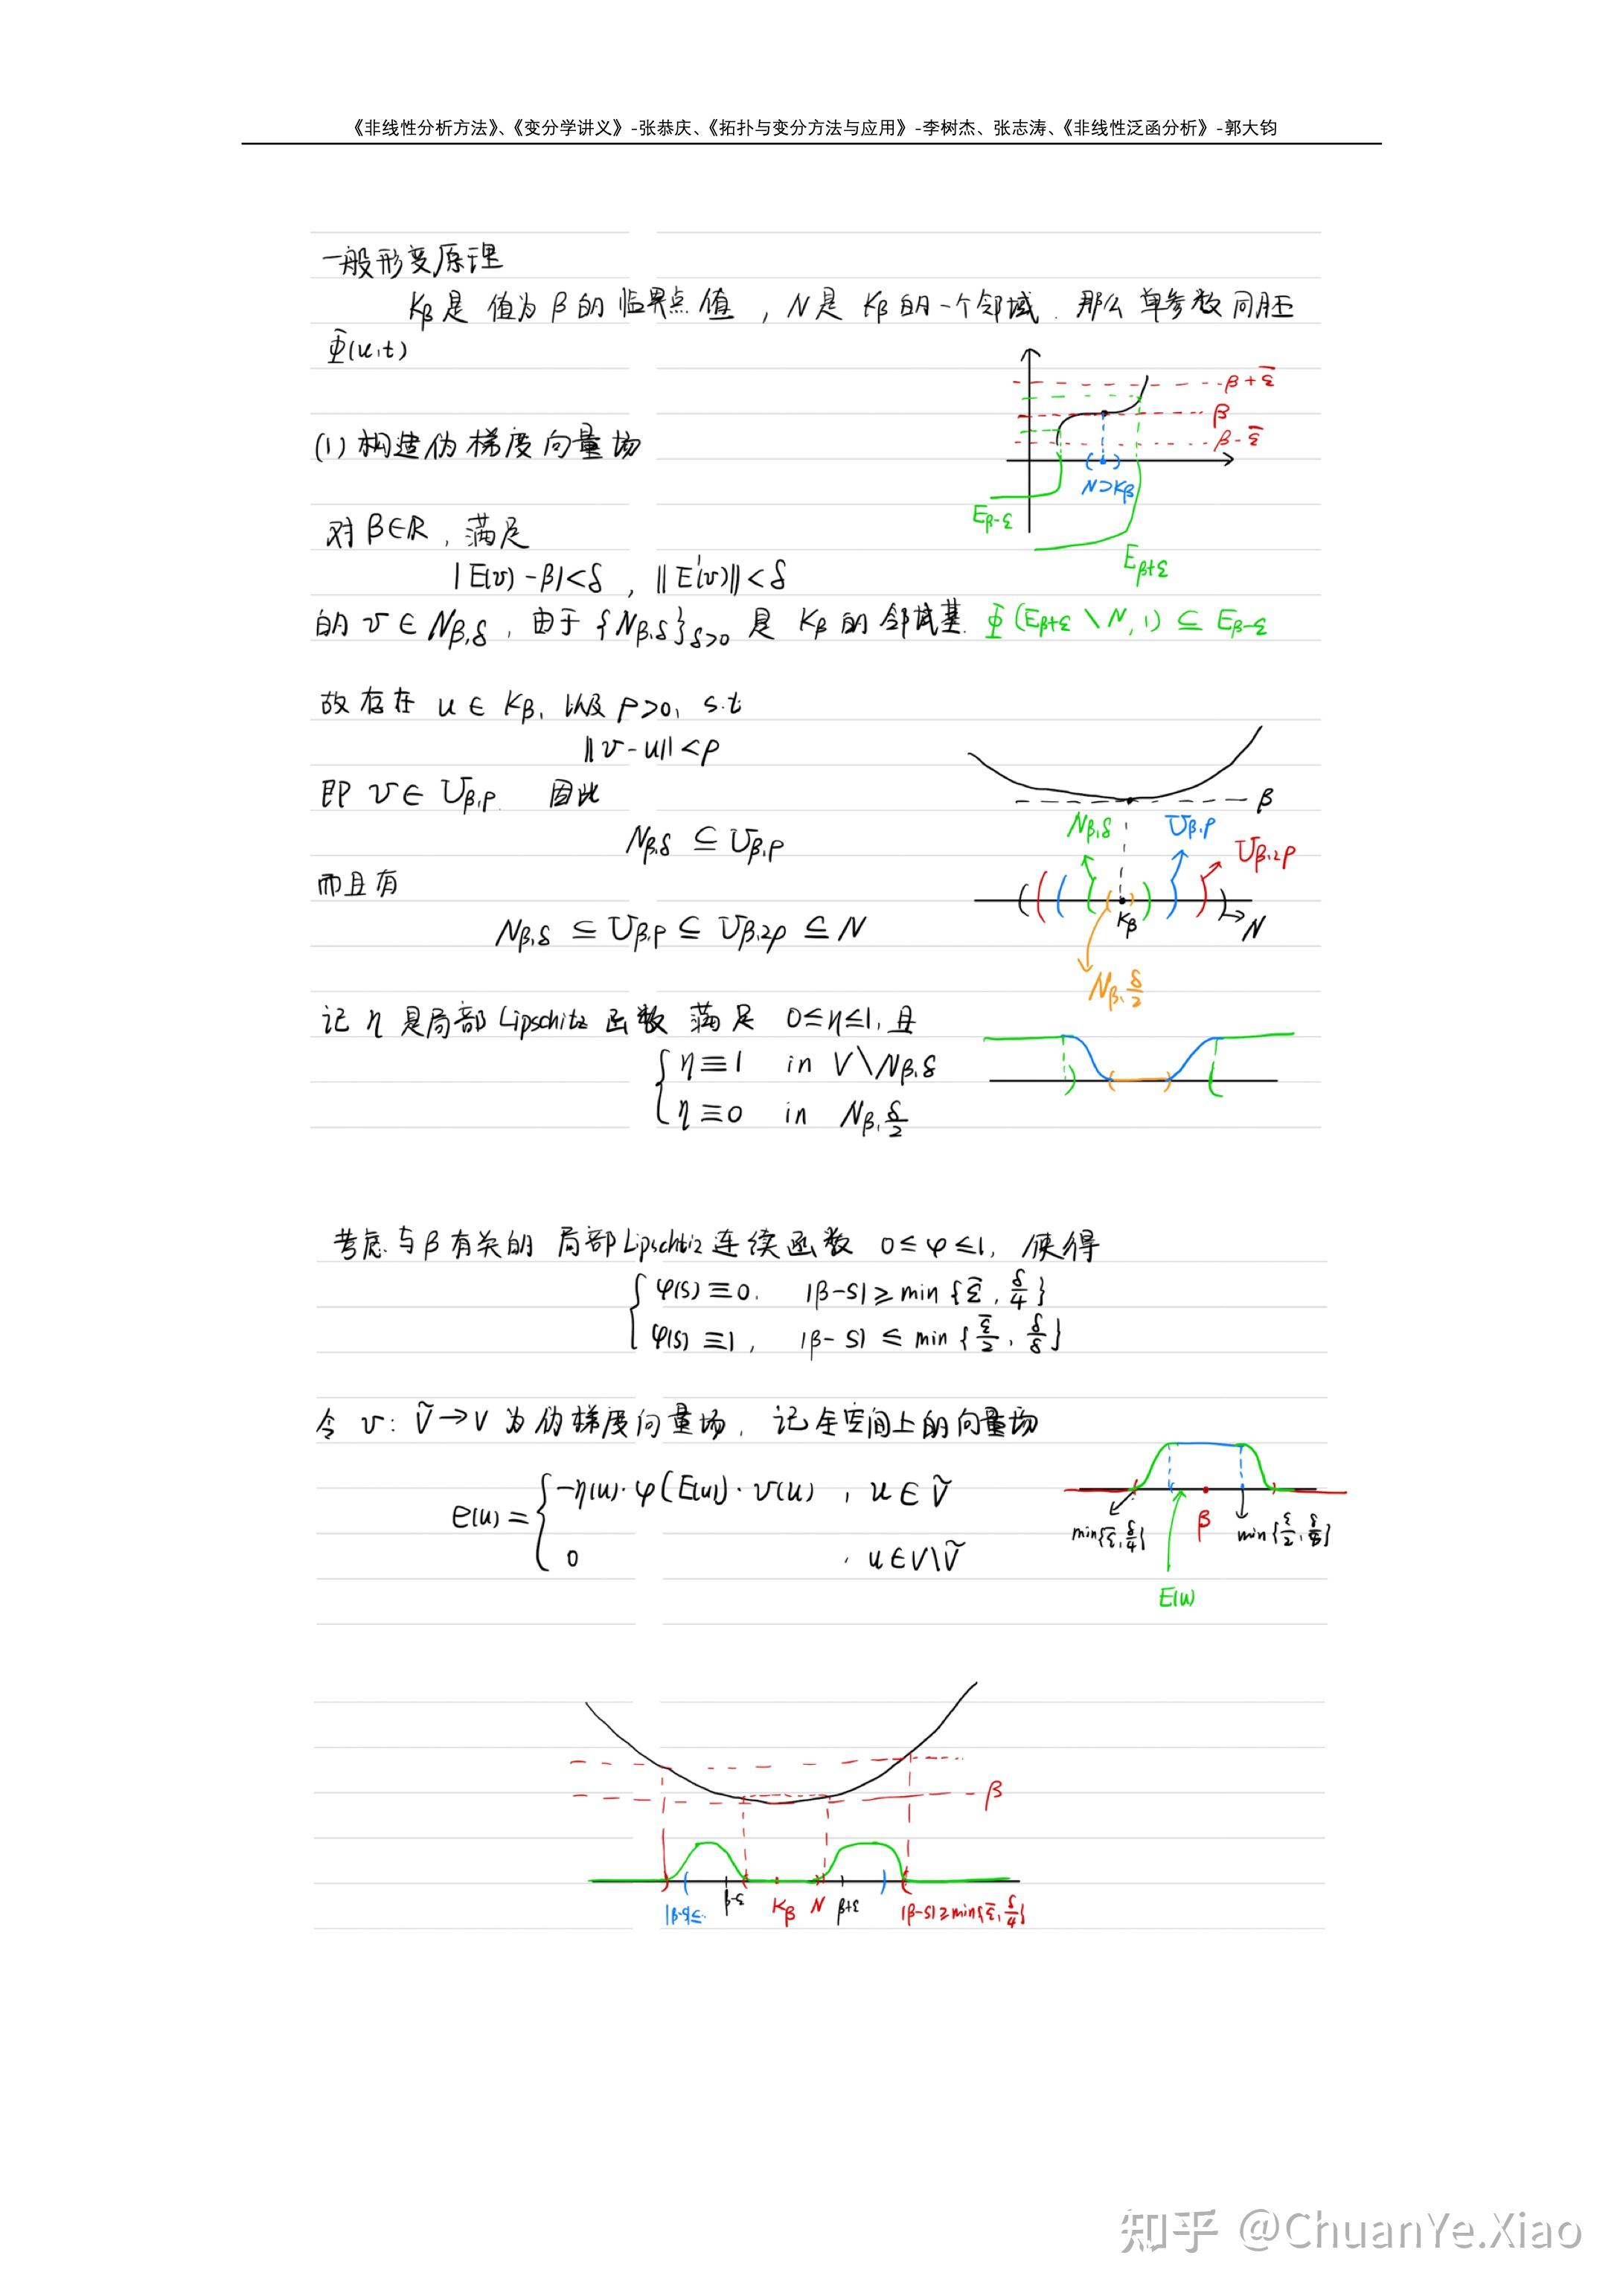 《非线性分析方法》、《变分学讲义》-张恭庆、《拓扑与变分方法与应用》-李树杰、张志涛、《非线性泛函分析》-郭大钧
一般形变原理
Kβ是 值为β的临界点值，N是 Kβ的一个邻域. 那么单参数同胚
Φ(u,t)
β+ε̄
β
β-ε̄
(1) 构造伪梯度向量场
N⊃Kβ
Eβ-ε
对β∈ℝ, 满足
Eβ+ε
|E(v)-β|<δ, ‖E'(v)‖<δ
的 v∈Nβ,δ, 由于{Nβ,δ}δ>0 是 Kβ的邻域基. Φ(Eβ+ε\N, 1) ⊆ Eβ-ε
故存在 u∈Kβ, 以及 ρ>0, s.t
‖v-u‖<ρ
即 v∈Uβ,ρ. 因此
β
Nβ,δ Uβ,ρ Uβ,2ρ
Nβ,δ ⊆ Uβ,ρ
而且有
Kβ N
Nβ,δ ⊆ Uβ,ρ ⊆ Uβ,2ρ ⊆ N
Nβ,δ/2
记 η 是局部Lipschitz函数 满足 0≤η≤1, 且
η≡1 in V\Nβ,δ
η≡0 in Nβ,δ/2
考虑与β有关的 局部Lipschtiz连续函数 0≤φ≤1, 使得
φ(s)≡0. |β-s|≥min{ε̄, δ/4}
φ(s)≡1, |β-s|≤min{ε̄/2, δ/8}
令 v: Ṽ→V 为伪梯度向量场, 记全空间上的向量场
e(u)= { -η(u)·φ(E(u))·v(u), u∈Ṽ
0 , u∈V\Ṽ
min{ε̄, δ/4} β min{ε/2, δ/8}
E(u)
β
|β-s|≤.. β-ε Kβ N β+ε |β-s|≥min{ε̄, δ/4}
知乎 @ChuanYe.Xiao